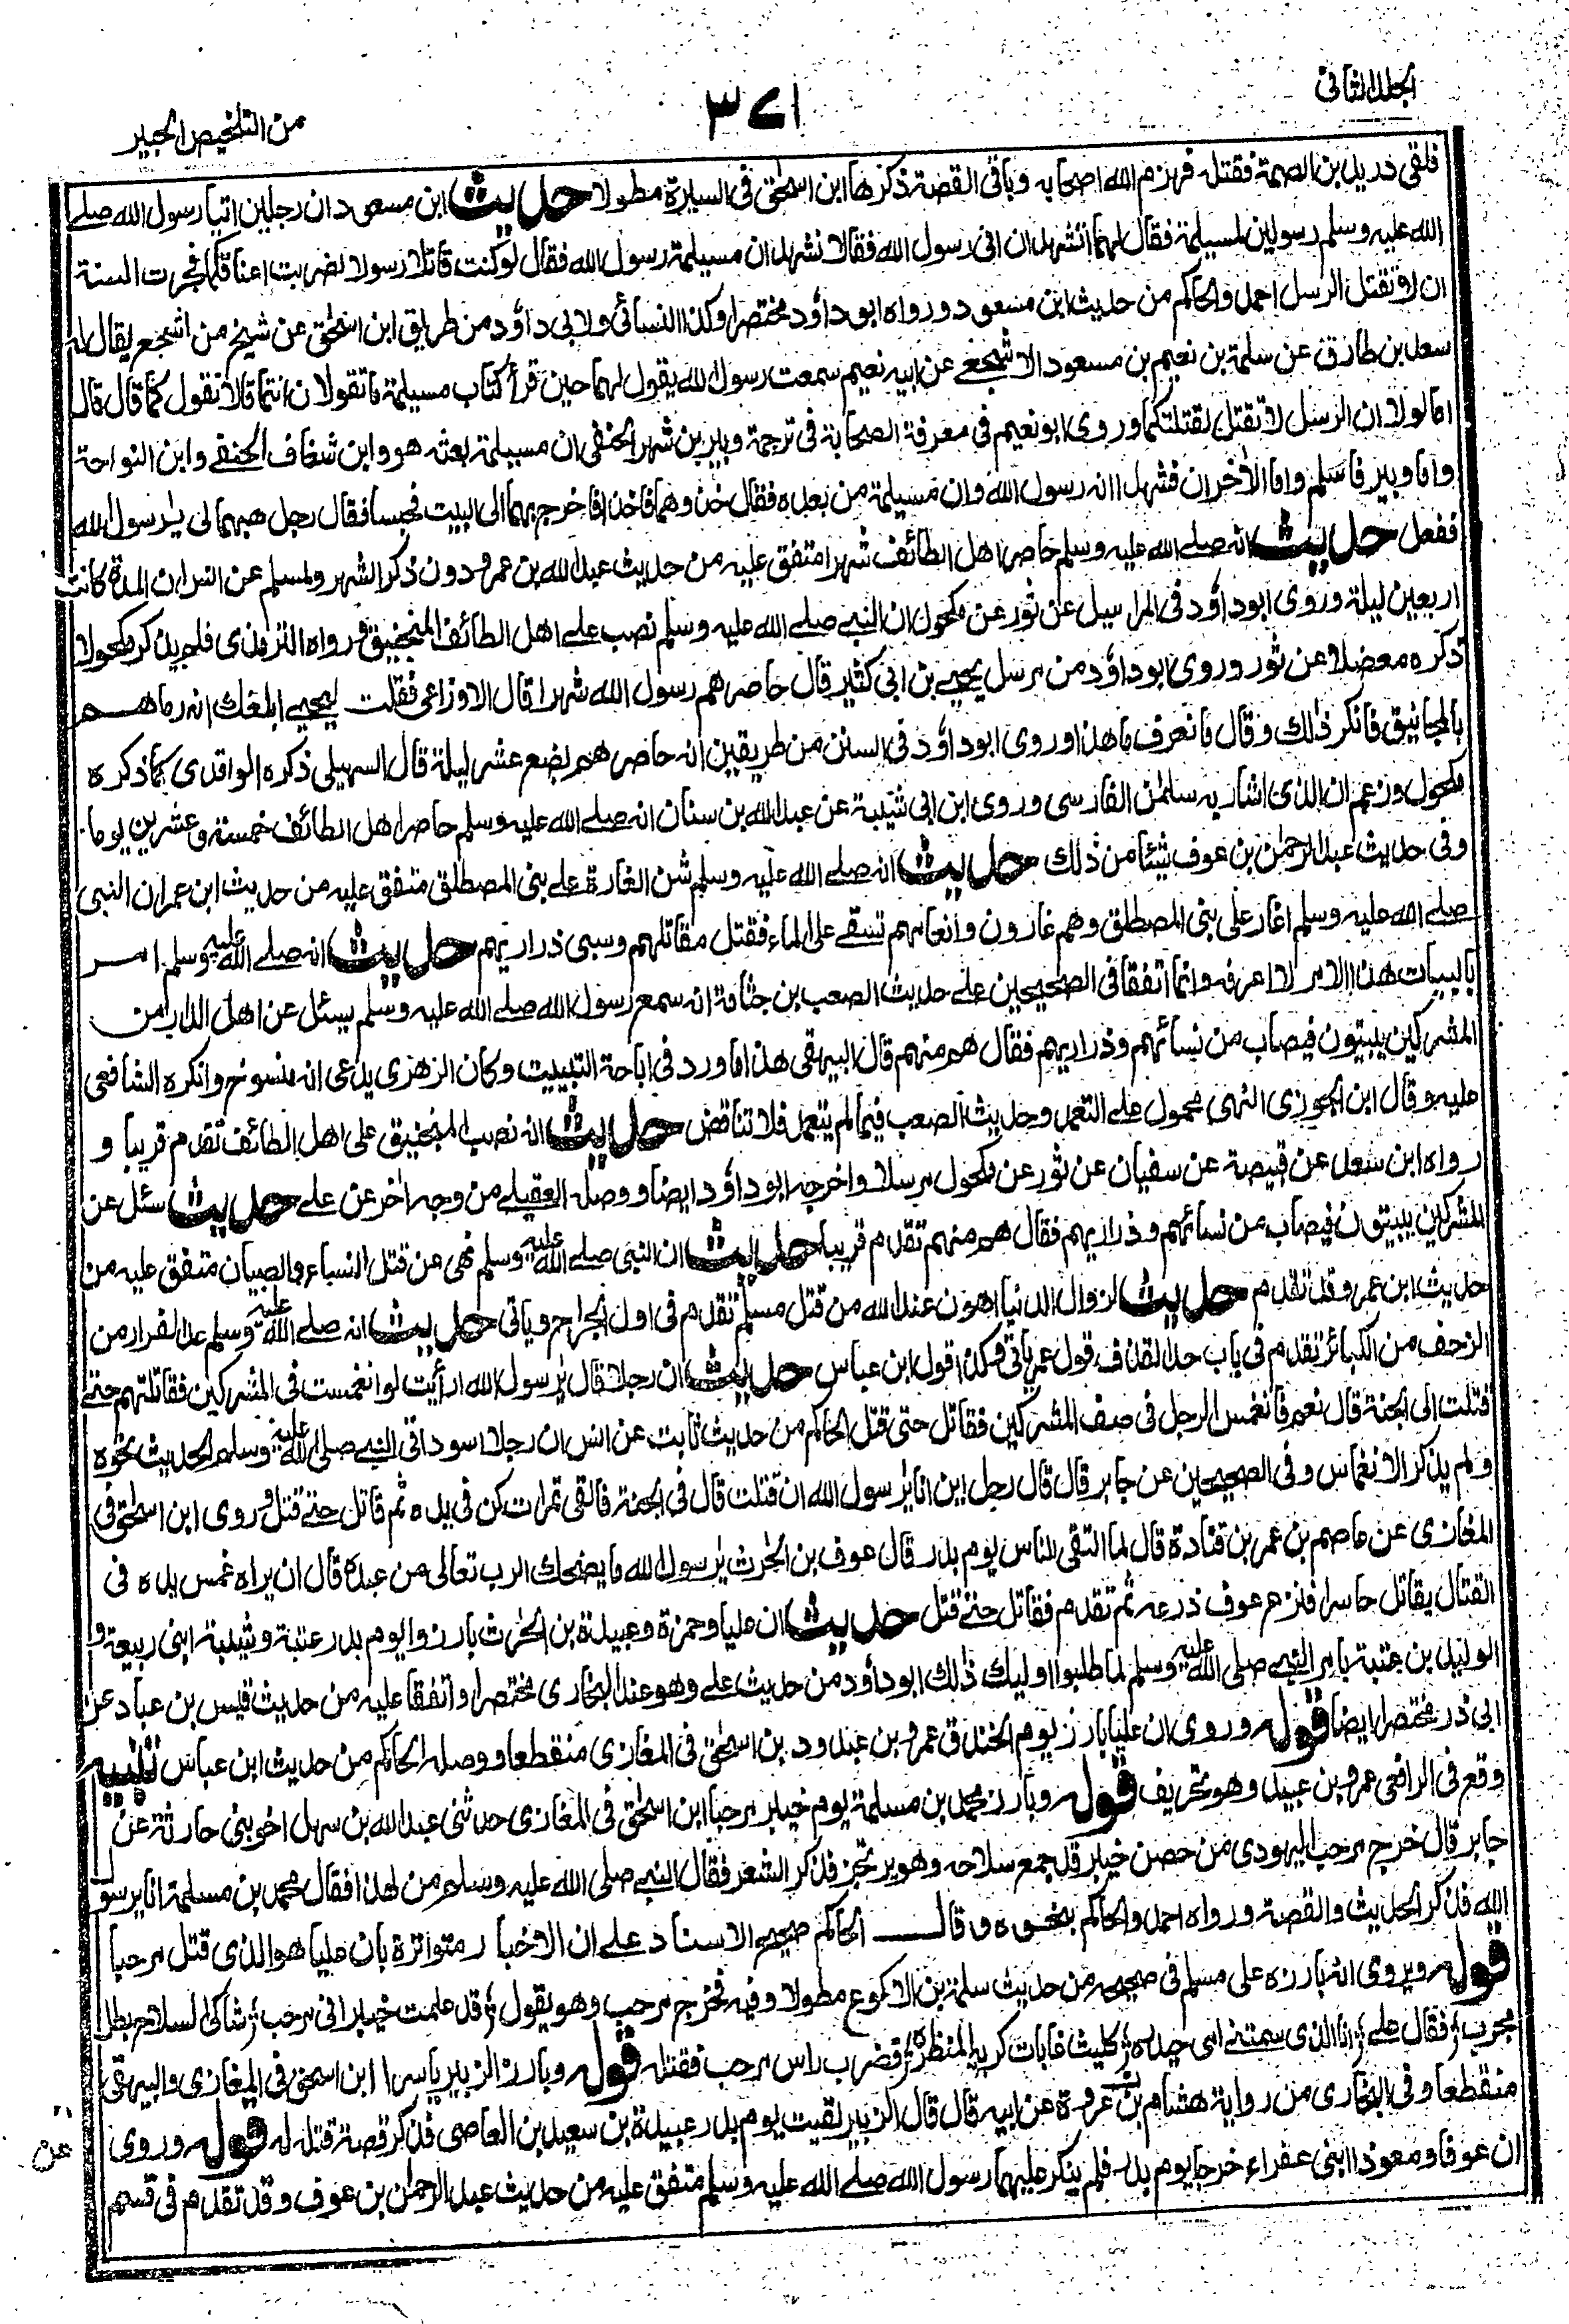 الجلد الثانی
٣٧١
من التلخیص الحبیر
فلقی درید بن الصمة فقتله فهزم الله اصحابه وباقی القصة ذکرها ابن اسحٰق فی السیرة مطولا حدیث ابن مسعود ان رجلین اتیا رسول الله صلے
الله علیه وسلم رسولین لمسیلمة فقال لهما اتشهد ان انی رسول الله فقالا نشهد ان مسیلمة رسول الله فقال لو کنت قاتلا رسولا لضربت اعناقکما فجرت السنة
ان لا تقتل الرسل احمد والحاکم من حدیث ابن مسعود ورواه ابو داؤد مختصرا وکذا النسائی ولابی داؤد من طریق ابن اسحٰق عن شیخ من اشجع یقال له
سعد بن طارق عن سلمة بن نعیم بن مسعود الاشجعے عن ابیه نعیم سمعت رسول الله یقول لهما حین قرأ کتاب مسیلمة ما تقولان انتما قالا نقول کما قال قال
اما لولا ان الرسل لا تقتل لقتلتکما وروی ابو نعیم فی معرفة الصحابة فی ترجمة وبیر بن شهر الحنفی ان مسیلمة بعثه هو وابن شغاف الحنفے وابن النواحة
واما وبیر فاسلم واما الاٰخران فشهدا انه رسول الله وان مسیلمة من بعده فقال خذوهما فاخذا فاخرج بهما الی البیت فحبسا فقال رجل هبهما لی یٰرسول الله
ففعل حدیث انه صلے الله علیه وسلم حاصر اهل الطائف شهرا متفق علیه من حدیث عبد الله بن عمرو دون ذکر الشهر ولمسلم عن انس ان المدة کانت
اربعین لیلة وروی ابو داؤد فی المراسیل عن ثور عن مکحول ان النبے صلے الله علیه وسلم نصب علے اهل الطائف المنجنیق ورواه الترمذی فلم یذکر مکحولا
ذکره معضلا عن ثور وروی ابو داؤد من مرسل یحیے بن ابی کثیر قال حاصرهم رسول الله شهرا قال الاوزاعی فقلت لیحیے ابلغک انه رماهم
بالمجانیق فانکر ذٰلک وقال ما نعرف ما هذا وروی ابو داؤد فی السنن من طریقین انه حاصرهم بضع عشر لیلة قال السهیلی ذکره الواقدی کما ذکره
مکحول وزعم ان الذی اشار به سلمٰن الفارسی وروی ابن ابی شیبة عن عبد الله بن سنان انه صلے الله علیه وسلم حاصر اهل الطائف خمسة وعشرین یوما
وفی حدیث عبد الرحمٰن بن عوف شیئا من ذٰلک حدیث انه صلے الله علیه وسلم شن الغارة علے بنی المصطلق متفق علیه من حدیث ابن عمر ان النبی
صلے الله علیه وسلم اغار علی بنی المصطلق وهم غارون وانعامهم تسقے علی الماء فقتل مقاتلهم وسبی ذراریهم حدیث انه صلے الله علیه وسلم امر
بالبیات هذا الامر لا اعرفه وانما اتفقا فی الصحیحین علے حدیث الصعب بن جثامة انه سمع رسول الله صلے الله علیه وسلم یسئل عن اهل الدار من
المشرکین یبیتون فیصاب من نسائهم وذراریهم فقال هم منهم قال البیهقی هذا ما ورد فی اباحة التبییت وکان الزهری یدعی انه منسوخ وانکره الشافعی
علیه وقال ابن الجوزی النهی محمول علے التعمد وحدیث الصعب فیما لم یتعمد فلا تناقض حدیث انه نصب المنجنیق علی اهل الطائف تقدم قریبا و
رواه ابن سعد عن قبیصة عن سفیان عن ثور عن مکحول مرسلا واخرجه ابو داؤد ایضا ووصله العقیلے من وجه اٰخر عن علے حدیث سئل عن
المشرکین یبیتون فیصاب من نسائهم وذراریهم فقال هم منهم تقدم قریبا حدیث ان النبی صلے الله علیه وسلم نهی عن قتل النساء والصبیان متفق علیه من
حدیث ابن عمر وقد تقدم حدیث لزوال الدنیا اهون عند الله من قتل مسلم تقدم فی اول الجراح ویاتی حدیث انه صلے الله علیه وسلم عد الفرار من
الزحف من الکبائر تقدم فی باب حد القذف قول عمر یاتی وکذا قول ابن عباس حدیث ان رجلا قال یٰرسول الله ارأیت لو انغمست فی المشرکین فقاتلتهم حتے
قتلت الی الجنة قال نعم فانغمس الرجل فی صف المشرکین فقاتل حتی قتل الحاکم من حدیث ثابت عن انس ان رجلا اسود اتی النبے صلی الله علیه وسلم الحدیث نحوه
ولم یذکر الانغماس وفی الصحیحین عن جابر قال قال رجل این انا یٰرسول الله ان قتلت قال فی الجنة فالقی تمرات کن فی یده ثم قاتل حتے قتل وروی ابن اسحٰق فی
المغازی عن عاصم بن عمر بن قتادة قال لما التقی الناس یوم بدر قال عوف بن الحٰرث یٰرسول الله ما یضحک الرب تعالی من عبده قال ان یراه غمس یده فی
القتال یقاتل حاسرا فنزع عوف درعه ثم تقدم فقاتل حتے قتل حدیث ان علیا وحمزة وعبیدة بن الحٰرث بارزوا یوم بدر عتبة وشیبة ابنی ربیعة و
الولید بن عتبة بامر النبے صلی الله علیه وسلم لما طلبوا اولیک ذٰلک ابو داؤد من حدیث علے وهو عند البخاری مختصرا واتفقا علیه من حدیث قیس بن عباد عن
ابی ذر مختصرا ایضا قوله وروی ان علیا بارز یوم الخندق عمرو بن عبد ود بن اسحٰق فی المغازی منقطعا ووصله الحاکم من حدیث ابن عباس تنبیه
وقع فی الرافعی عمرو بن عبید وهو تحریف قوله وبارز محمد بن مسلمة یوم خیبر مرحبا ابن اسحٰق فی المغازی حدثنی عبد الله بن سهل اخو بنی حارثة عن
جابر قال خرج مرحب الیهودی من حصن خیبر قد جمع سلاحه وهو یرتجز فذکر الشعر فقال النبے صلی الله علیه وسلم من لهذا فقال محمد بن مسلمة انا یرسول
الله فذکر الحدیث والقصة ورواه احمد والحاکم بنحوه وقال الحاکم صحیح الاسناد علے ان الاخبار متواترة بان علیا هو الذی قتل مرحبا
قوله ویروی انه بارزه علی مسلم فی صحیحه من حدیث سلمة بن الاکوع مطولا وفیه فخرج مرحب وهو یقول ؛ قد علمت خیبر انی مرحب ؛ شاکی السلاح بطل
مجرب ؛ فقال علے ؛ انا الذی سمتنے امی حیدره ؛ کلیث غابات کریه المنظره ؛ فضرب راس مرحب فقتله قوله وبارز الزبیر یاسرا ابن اسحٰق فی المغازی والبیهقی
منقطعا وفی البخاری من روایة هشام بن عروة عن ابیه قال قال الزبیر لقیت یوم بدر عبیدة بن سعید بن العاصی فذکر قصة قتله له قوله وروی
ان عوفا ومعوذا ابنی عفراء خرجا یوم بدر فلم ینکر علیهما رسول الله صلے الله علیه وسلم متفق علیه من حدیث عبد الرحمٰن بن عوف وقد تقدم فی قسم
عن